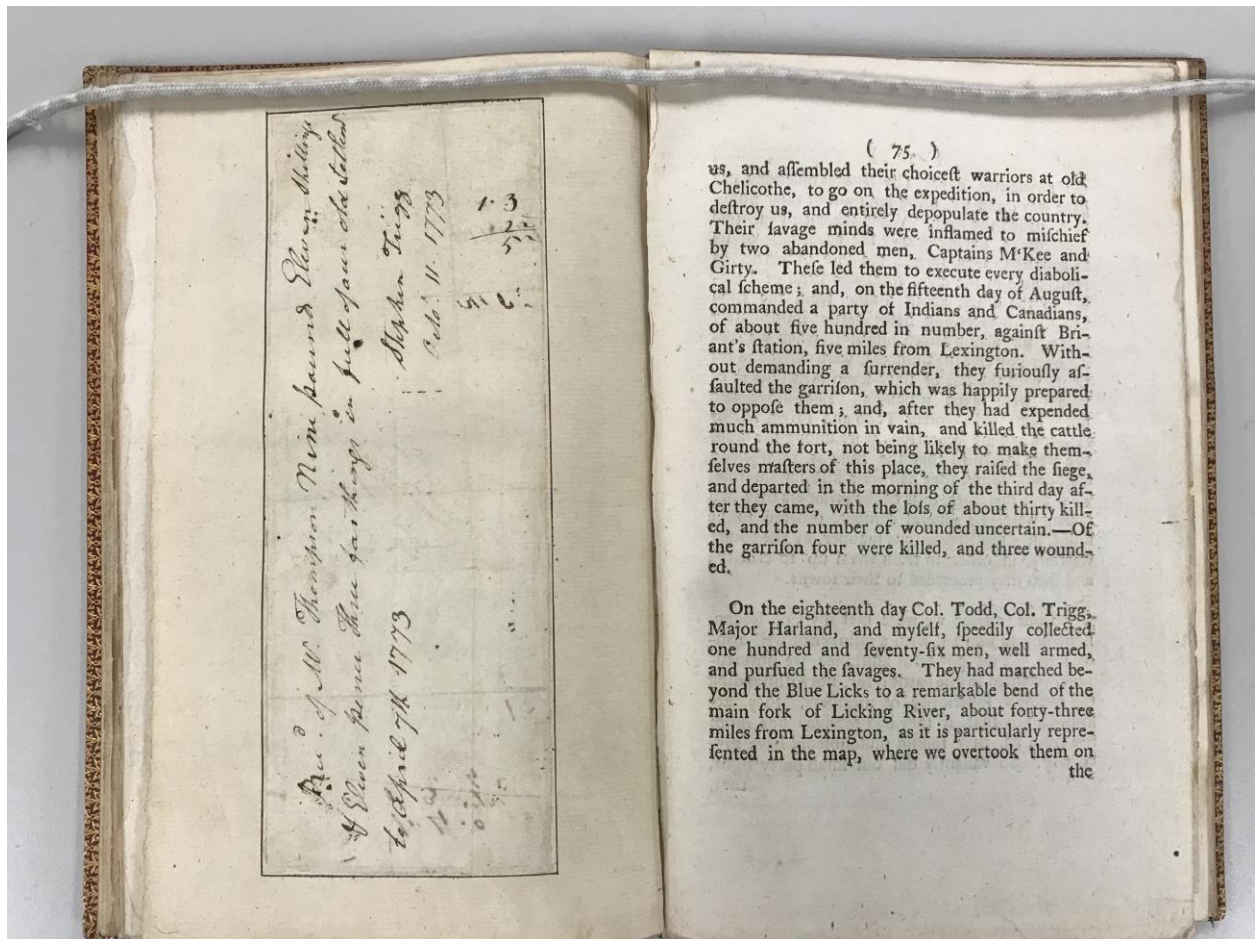 Rec.d of Mr. Thompson Nine pound Eleven Shillings
& Eleven pence three farthings in full of our old Settlem
to April 7th 1773
Stephen Trigg
Octor. 11. 1773
( 75 )
us, and aſſembled their choiceſt warriors at old
Chelicothe, to go on the expedition, in order to
deſtroy us, and entirely depopulate the country.
Their ſavage minds were inflamed to miſchief
by two abandoned men, Captains M‘Kee and
Girty. Theſe led them to execute every diaboli-
cal ſcheme; and, on the fifteenth day of Auguſt,
commanded a party of Indians and Canadians,
of about five hundred in number, againſt Bri-
ant's ſtation, five miles from Lexington. With-
out demanding a ſurrender, they furiouſly aſ-
ſaulted the garriſon, which was happily prepared
to oppoſe them; and, after they had expended
much ammunition in vain, and killed the cattle
round the fort, not being likely to make them-
ſelves maſters of this place, they raiſed the ſiege,
and departed in the morning of the third day af-
ter they came, with the loſs of about thirty kill-
ed, and the number of wounded uncertain.—Of
the garriſon four were killed, and three wound-
ed.
On the eighteenth day Col. Todd, Col. Trigg,
Major Harland, and myſelf, ſpeedily collected
one hundred and ſeventy-ſix men, well armed,
and purſued the ſavages. They had marched be-
yond the Blue Licks to a remarkable bend of the
main fork of Licking River, about forty-three
miles from Lexington, as it is particularly repre-
ſented in the map, where we overtook them on
the